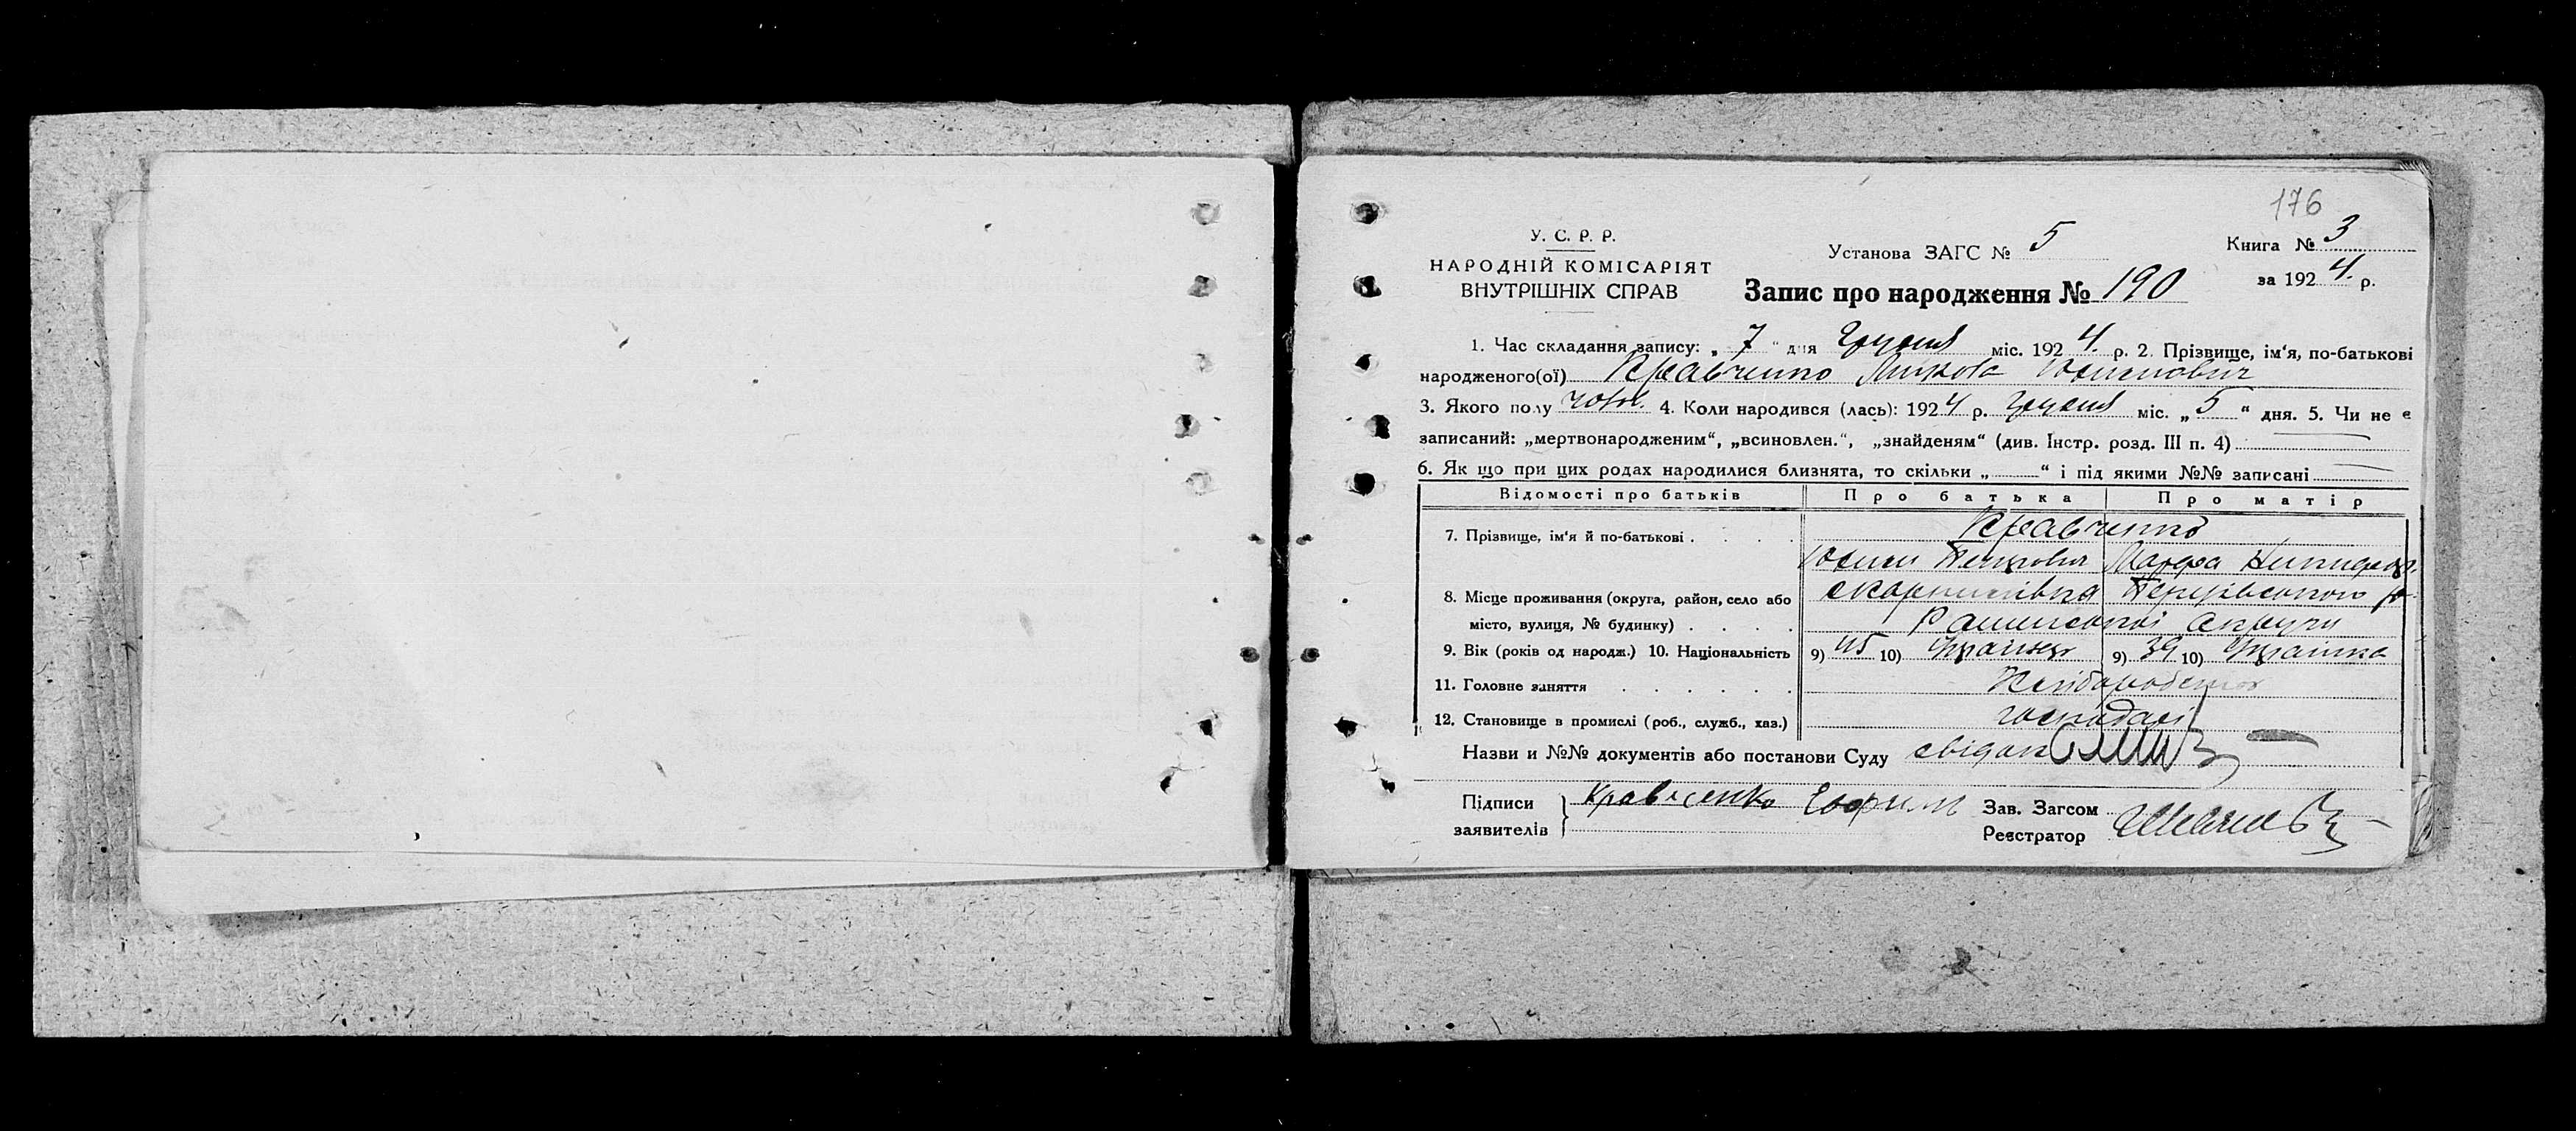 176
У. С. Р. Р.
НАРОДНІЙ КОМІСАРІЯТ
ВНУТРІШНІХ СПРАВ
Установа ЗАГС № 5
Книга № 3
за 1924 р.
Запис про народження № 190
1. Час складання запису: „ 7 " дня Грудня міс. 1924 р. 2. Прізвище, ім'я, по-батькові
народженого(ої) Кравченко Микола
3. Якого полу чолов. 4. Коли народився (лась): 1924 р. Грудня міс. „ 5 " дня. 5. Чи не є
записаний: „мертвонародженим", „всиновлен.", „знайденям" (див. Інстр. розд. III п. 4) —
6. Як що при цих родах народилися близнята, то скільки „ — " і під якими №№ записані —
Відомості про батьків Про батька Про матір
7. Прізвище, ім'я й по-батькові . . . . Кравченко
Марфа
8. Місце проживання (округа, район, село або
місто, вулиця, № будинку) . . . . Роменської Округи
9. Вік (років од народж.) 10. Національність 9) 45 10) Українец 9) 39 10) Українка
11. Головне заняття . . . . . . Хліборобство
12. Становище в промислі (роб., служб., хаз.) господарі
Назви и №№ документів або постанови Суду —
Підписи
заявителів
Кравченко
Зав. Загсом
Реєстратор